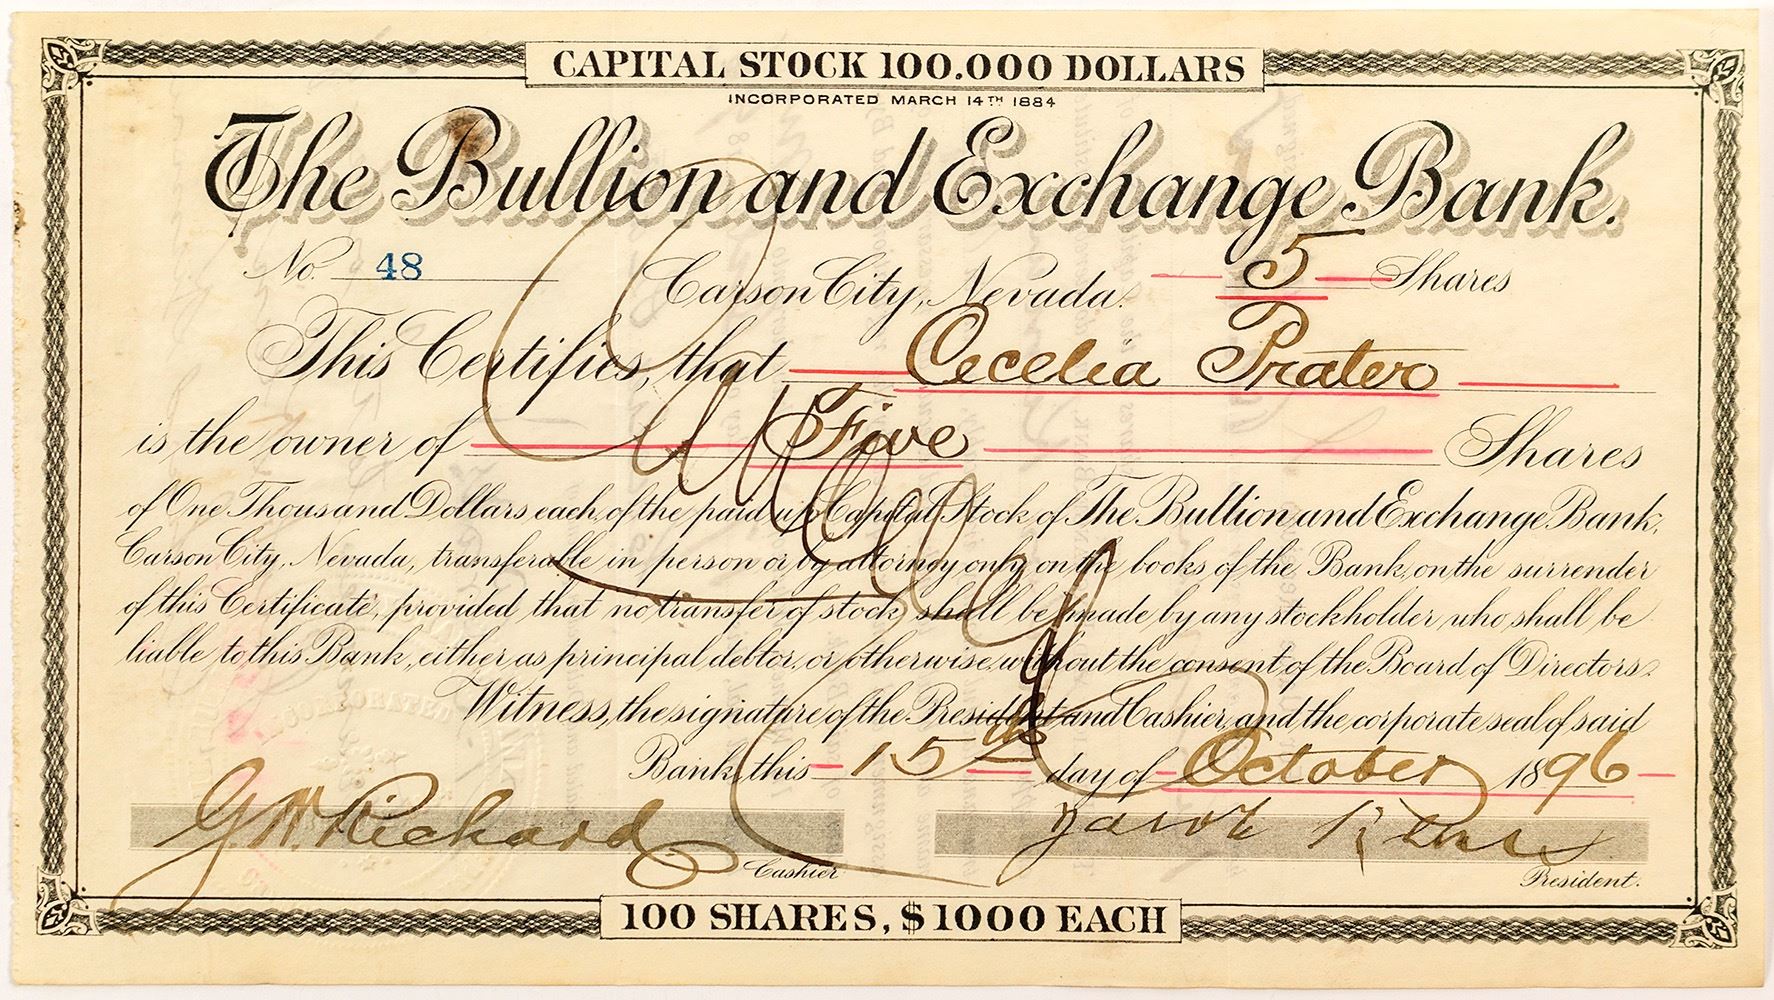 CAPITAL STOCK 100.000 DOLLARS
INCORPORATED MARCH 14TH 1884
The Bullion and Exchange Bank.
No. 48 Carson City, Nevada. 5 Shares
This Certifies, that Cecelia Prater
is the owner of Five Shares
of One Thousand Dollars each, of the paid up Capital Stock of The Bullion and Exchange Bank,
Carson City, Nevada, transferable in person or by attorney only, on the books of the Bank, on the surrender
of this Certificate, provided that no transfer of stock shall be made by any stockholder who shall be
liable to this Bank, either as principal debtor, or otherwise, without the consent of the Board of Directors.
Witness, the signature of the President and Cashier, and the corporate seal of said
Bank, this 15th day of October 1896
G. W. Richard
Cashier President.
100 SHARES, $1000 EACH